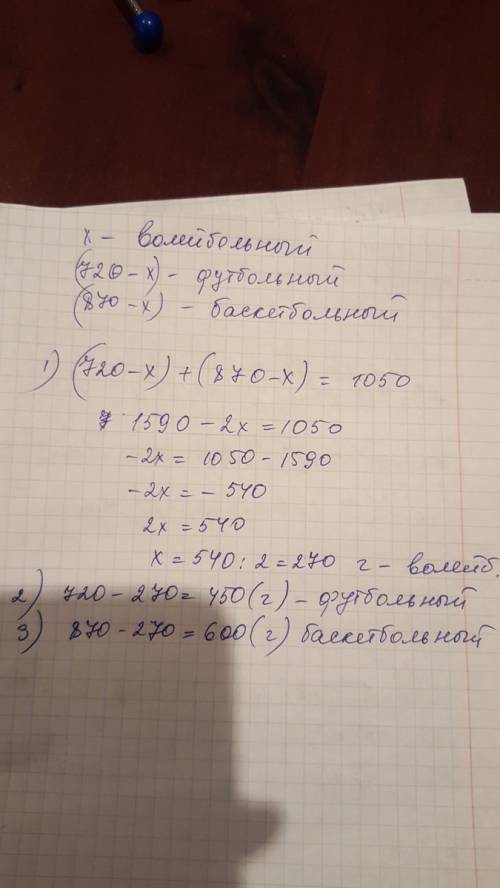 x – волейбольный
(720 – x) – футбольный
(870 – x) – баскетбольный
1) (720 – x) + (870 – x) = 1050
1590 – 2x = 1050
–2x = 1050 – 1590
–2x = – 540
2x = 540
x = 540 : 2 = 270 г – волейб.
2) 720 – 270 = 450 (г) – футбольный
3) 870 – 270 = 600 (г) баскетбольный